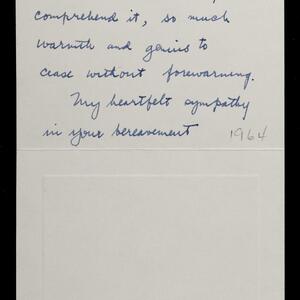 comprehend it, so much
warmth and genius to
cease without forewarning.
My heartfelt sympathy
in your bereavement 1964